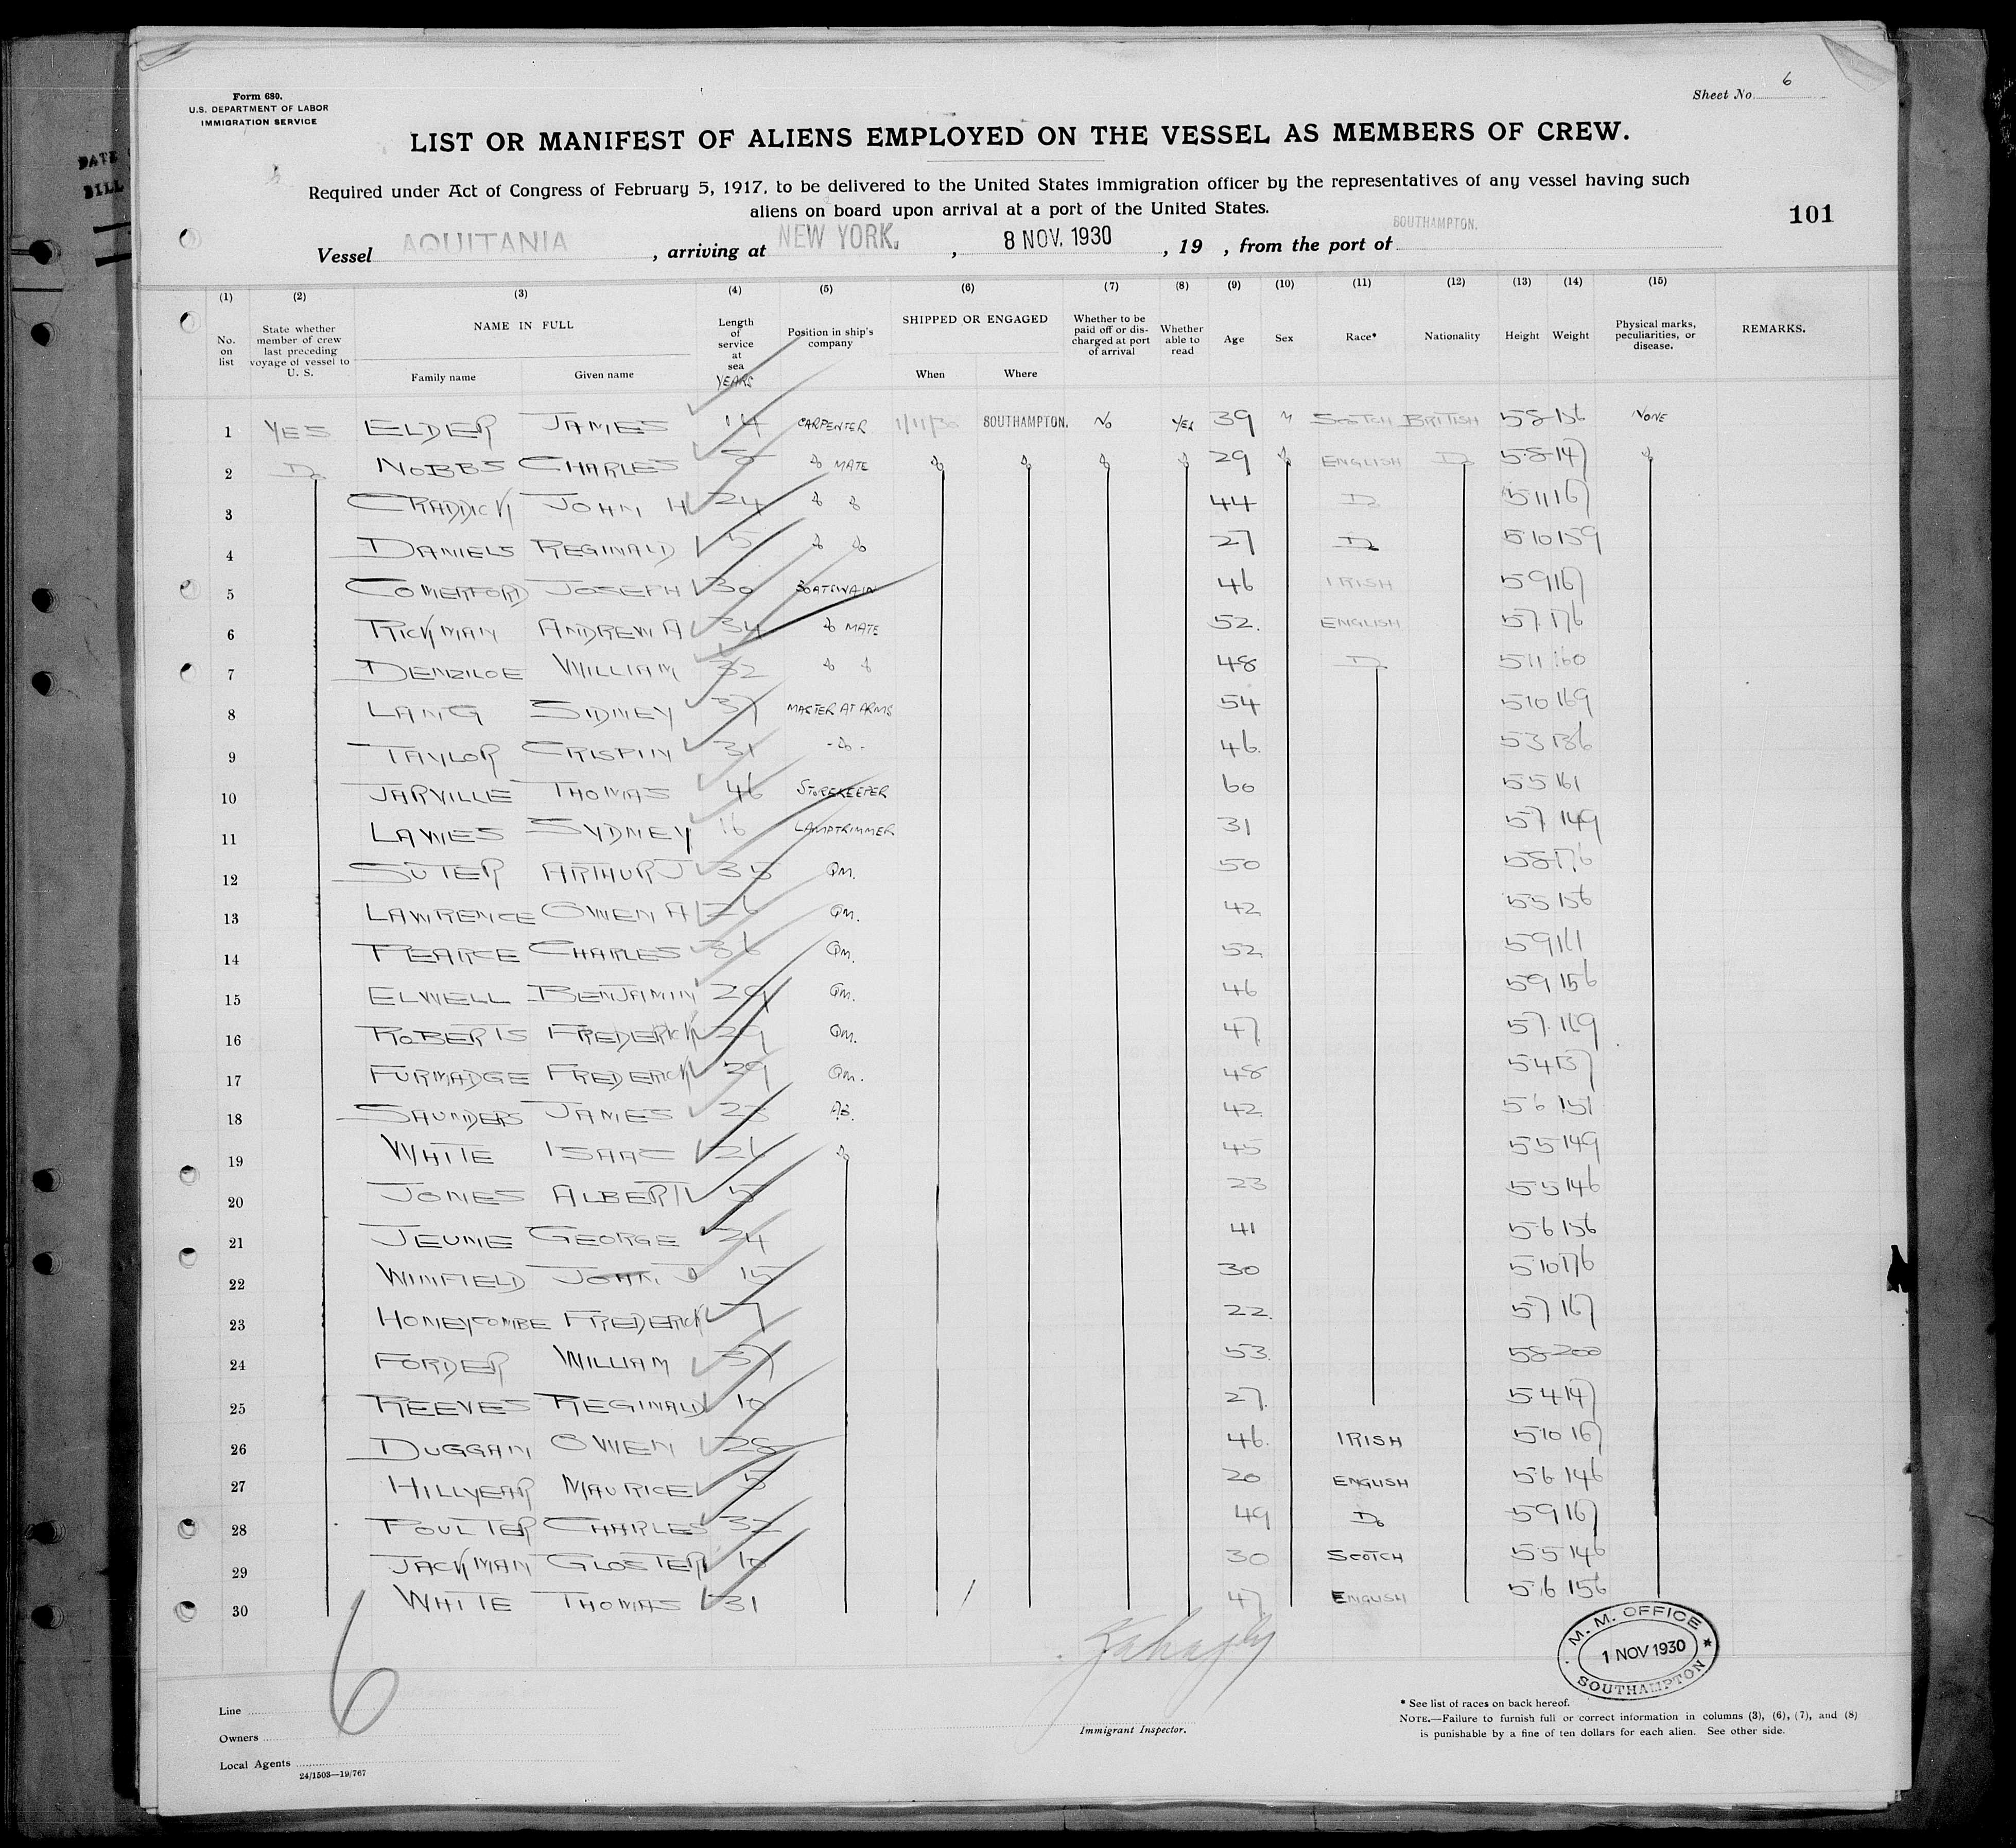 DATE
BILL
Form 680.
U.S. DEPARTMENT OF LABOR
IMMIGRATION SERVICE
Sheet No. 6
LIST OR MANIFEST OF ALIENS EMPLOYED ON THE VESSEL AS MEMBERS OF CREW.
Required under Act of Congress of February 5, 1917, to be delivered to the United States immigration officer by the representatives of any vessel having such
aliens on board upon arrival at a port of the United States.
101
Vessel AQUITANIA, arriving at NEW YORK, 8 NOV. 1930, 19 , from the port of SOUTHAMPTON.
(1) (2) (3) (4) (5) (6) (7) (8) (9) (10) (11) (12) (13) (14) (15)
No. on list
State whether member of crew last preceding voyage of vessel to U. S.
NAME IN FULL
Family name Given name
Length of service at sea
YEARS
Position in ship's company
SHIPPED OR ENGAGED
When Where
Whether to be paid off or discharged at port of arrival
Whether able to read
Age
Sex
Race*
Nationality
Height
Weight
Physical marks, peculiarities, or disease.
REMARKS.
1 YES ELDER JAMES 14 CARPENTER 1/11/30 SOUTHAMPTON. No YES 39 M SCOTCH BRITISH 5-8 156 NONE
2 Do NOBBS CHARLES 5 Do MATE Do Do Do Do 29 Do ENGLISH Do 5-8 147 Do
3 CRADDICK JOHN H 24 Do Do 44 Do 5 11 167
4 DANIELS REGINALD 5 Do Do 27 Do 5 10 159
5 COMERFORD JOSEPH 30 BOATSWAIN 46 IRISH 5 9 167
6 RICKMAN ANDREW A 34 Do MATE 52. ENGLISH 5 7 176
7 DENZILOE WILLIAM 32 Do Do 48 Do 5 11 160
8 LANG SIDNEY 37 MASTER AT ARMS 54 5 10 169
9 TAYLOR CRISPIN 31 - Do - 46. 5 3 136
10 JARVILLE THOMAS 46 STOREKEEPER 60 5 5 161
11 LAWES SYDNEY 16 LAMPTRIMMER 31 5 7 149
12 SUTER ARTHUR J 35 QM. 50 5 8 176
13 LAWRENCE OWEN A 26 QM. 42 5 5 156
14 PEARCE CHARLES 36 QM. 52 5 9 161
15 ELWELL BENJAMIN 29 QM. 46 5 9 156
16 ROBERTS FREDERICK 29 QM. 47 5 7 169
17 FURMADGE FREDERICK 29 QM. 48 5 4 137
18 SAUNDERS JAMES 23 AB. 42. 5 6 151
19 WHITE ISAAC 26 Do 45 5 5 149
20 JONES ALBERT 5 23 5 5 146
21 JEUNE GEORGE 24 41 5 6 156
22 WINFIELD JOHN J 15 30 5 10 176
23 HONEYCOMBE FREDERICK 7 22. 5 7 167
24 FORDER WILLIAM 37 53. 5 8 200
25 REEVES REGINALD 10 27. 5 4 147
26 DUGGAN OWEN 28 46. IRISH 5 10 167
27 HILLYEAR MAURICE 5 20 ENGLISH 5 6 146
28 POULTER CHARLES 32 49 Do 5 9 167
29 JACKMAN GLOSTER 10 30 SCOTCH 5 5 146
30 WHITE THOMAS 31 47 ENGLISH 5 6 156
6
M. M. OFFICE
1 NOV 1930
SOUTHAMPTON
Line
Owners
Local Agents
24/1503—19/767
Immigrant Inspector.
* See list of races on back hereof.
NOTE.—Failure to furnish full or correct information in columns (3), (6), (7), and (8)
is punishable by a fine of ten dollars for each alien. See other side.